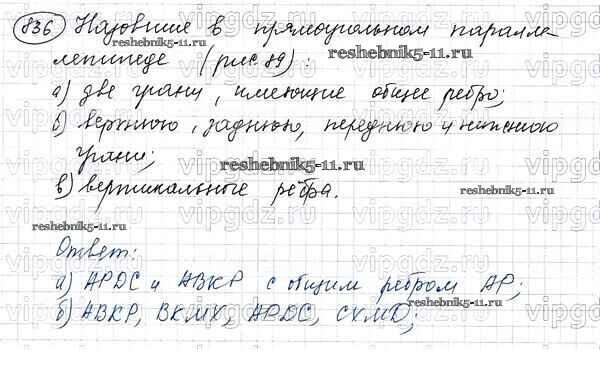 836 Назовите в прямоугольном паралле
лепипеде (рис 89):
а) две грани, имеющие общее ребро;
б) верхнюю, заднюю, переднюю и нижнюю
грани;
в) вертикальные ребра.
Ответ:
а) APDC и ABKP с общим ребром AP;
б) ABKP, BKMX, APDC, CXMD;
reshebnik5-11.ru
reshebnik5-11.ru
reshebnik5-11.ru
reshebnik5-11.ru
reshebnik5-11.ru
reshebnik5-11.ru
vipgdz.ru